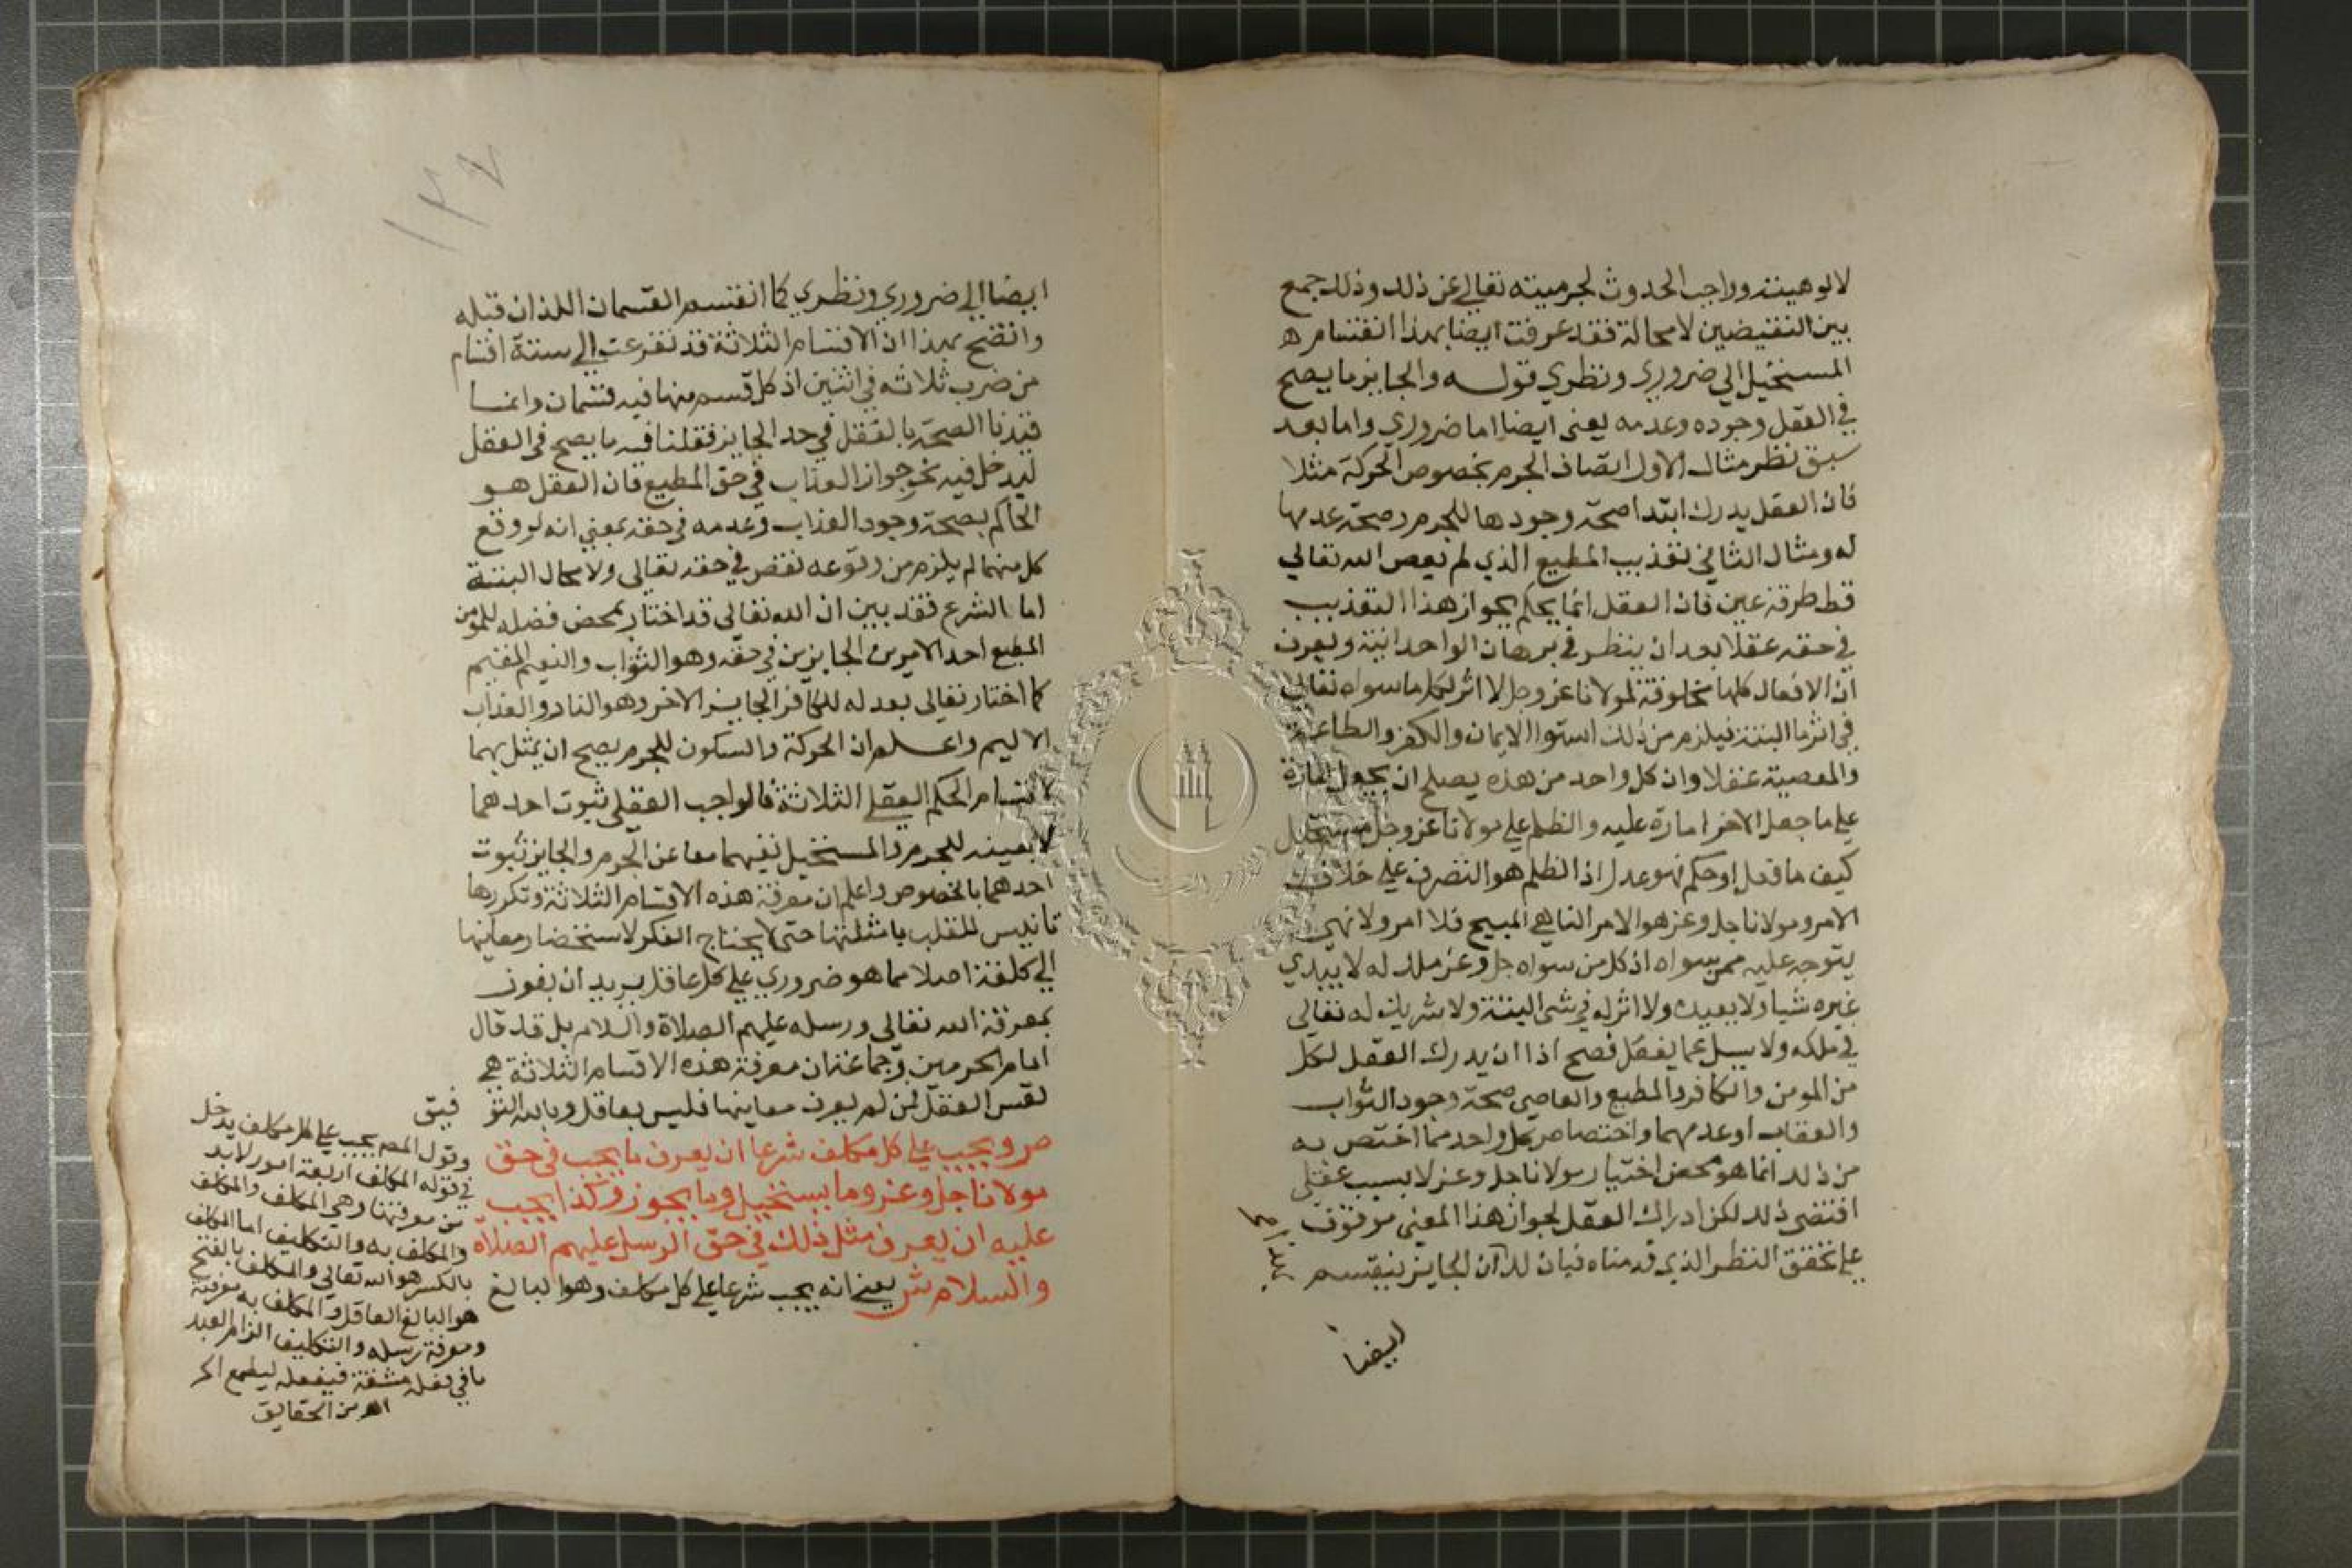 لالوهيته وواجب الحدوث لجرميته تعالى عن ذلك وذلك جمع
بين النقيضين لا محالة فقد عرفت ايضا بهذا انقسام ه
المستحيل الي ضروري ونظري قوله والجايز ما يصح
في العقل وجوده وعدمه يعني ايضا اما ضروري واما بعد
سبق نظر مثال الاول اتصاف الجرم بخصوص الحركة مثلا
فان العقل يدرك ابتدا صحة وجودها للجرم وصحة عدمها
له ومثال الثاني تعذيب المطيع الذي لم يعص الله تعالي
قط طرفة عين فان العقل انما يحكم بجواز هذا التعذيب
في حقه عقلا بعد ان ينظر في برهان الواحدانية ويعرف
ان الافعال كلها مخلوقة لمولانا عز وجل لا اثر لكل ما سواه تعالى
في اثر ما البتة فيلزم من ذلك استوا الايمان والكفر والطاعة
والمعصية عقلا وان كل واحد من هذه يصلح ان يجعل امارة
علي ما جعل الاخر امارة عليه والظلم علي مولانا عز وجل مستحيل
كيف ما فعل او حكم فهو عدل اذ الظلم هو التصرف علي خلاف
الامر ومولانا جل وعز هو الامر الناهي المبيح فلا امر ولا نهي
يتوجه عليه ممن سواه اذ كل من سواه جل وعز ملك له لا يبدي
غيره شيا ولا يعيد ولا اثر له في شي البتة ولا شريك له تعالى
في ملكه ولا يسيل عما يفعل فصح اذا ان يدرك العقل لكل
من المومن والكافر والمطيع والعاصي صحة وجود الثواب
والعقاب او عدمهما واختصاص كل واحد منا اختص به
من ذلك انما هو محض اختيار مولانا جل وعز لا بسبب عقلي
اقتضى ذلك لكن ادراك العقل لجواز هذا المعنى موقوف
علي تحقق النظر الذي قدمناه فبان لك ان الجايز ينقسم
ايضا
ايضا الي ضروري ونظري كما انقسم القسمان اللذان قبله
واتضح بهذا ان الاقسام الثلاثة قد تفرعت الي ستة اقسام
من ضرب ثلاثه في اثنين اذ كل قسم منها فيه قسمان وانما
قيدنا الصحة بالعقل في حد الجايز فقلنا فيه ما يصح في العقل
ليدخل فيه نحو جواز العذاب في حق المطيع فان العقل هو
الحاكم بصحة وجود العذاب وعدمه في حقه بمعني انه لو وقع
كل منهما لم يلزم من وقوعه نقص في حقه تعالى ولا محال البتة
اما الشرع فقد بين ان الله تعالى قد اختار بمحض فضله للمومن
المطيع احد الامرين الجايزين في حقه وهو الثواب والنعيم المقيم
كما اختار تعالى بعدله للكافر الجايز الاخر وهو النار والعذاب
الاليم واعلم ان الحركة والسكون للجرم يصح ان يمثل بهما
لاقسام الحكم العقلي الثلاثة فالواجب العقلي ثبوت احدهما
لا بعينه للجرم والمستحيل نفيهما معا عن الجرم والجايز ثبوت
احدهما بالخصوص واعلم ان معرفة هذه الاقسام الثلاثة وتكريرها
تانيس للقلب بامثلتها حتى لا يحتاج الفكر لاستحضار معاينها
الي كلفة اصلا مما هو ضروري علي كل عاقل يريد ان يفوز
بمعرفة الله تعالى ورسله عليهم الصلاة والسلام بل قد قال
امام الحرمين وجماعة ان معرفة هذه الاقسام الثلاثة هي
نفس العقل فمن لم يعرف معاينها فليس بعاقل وبالله التو
فيق
ص ويجب علي كل مكلف شرعا ان يعرف ما يجب في حق
مولانا جل وعز وما يستحيل وما يجوز وكذا يجب
عليه ان يعرف مثل ذلك في حق الرسل عليهم الصلاة
والسلام ش يعني انه يجب شرعا علي كل مكلف وهو البالغ
وقول المص يجب علي كل مكلف يدخل
في قوله المكلف اربعة امور لابد
من معرفتها وهي المكلف والمكلف
والمكلف به والتكليف اما المكلف
بالكسر هو الله تعالى والمكلف بالفتح
هو البالغ العاقل والمكلف به معرفة
ومعرفة رسله والتكليف الزام العبد
ما في فعله مشقة فيفعله ليطمع
اهـ من الحقايق
١٣٧